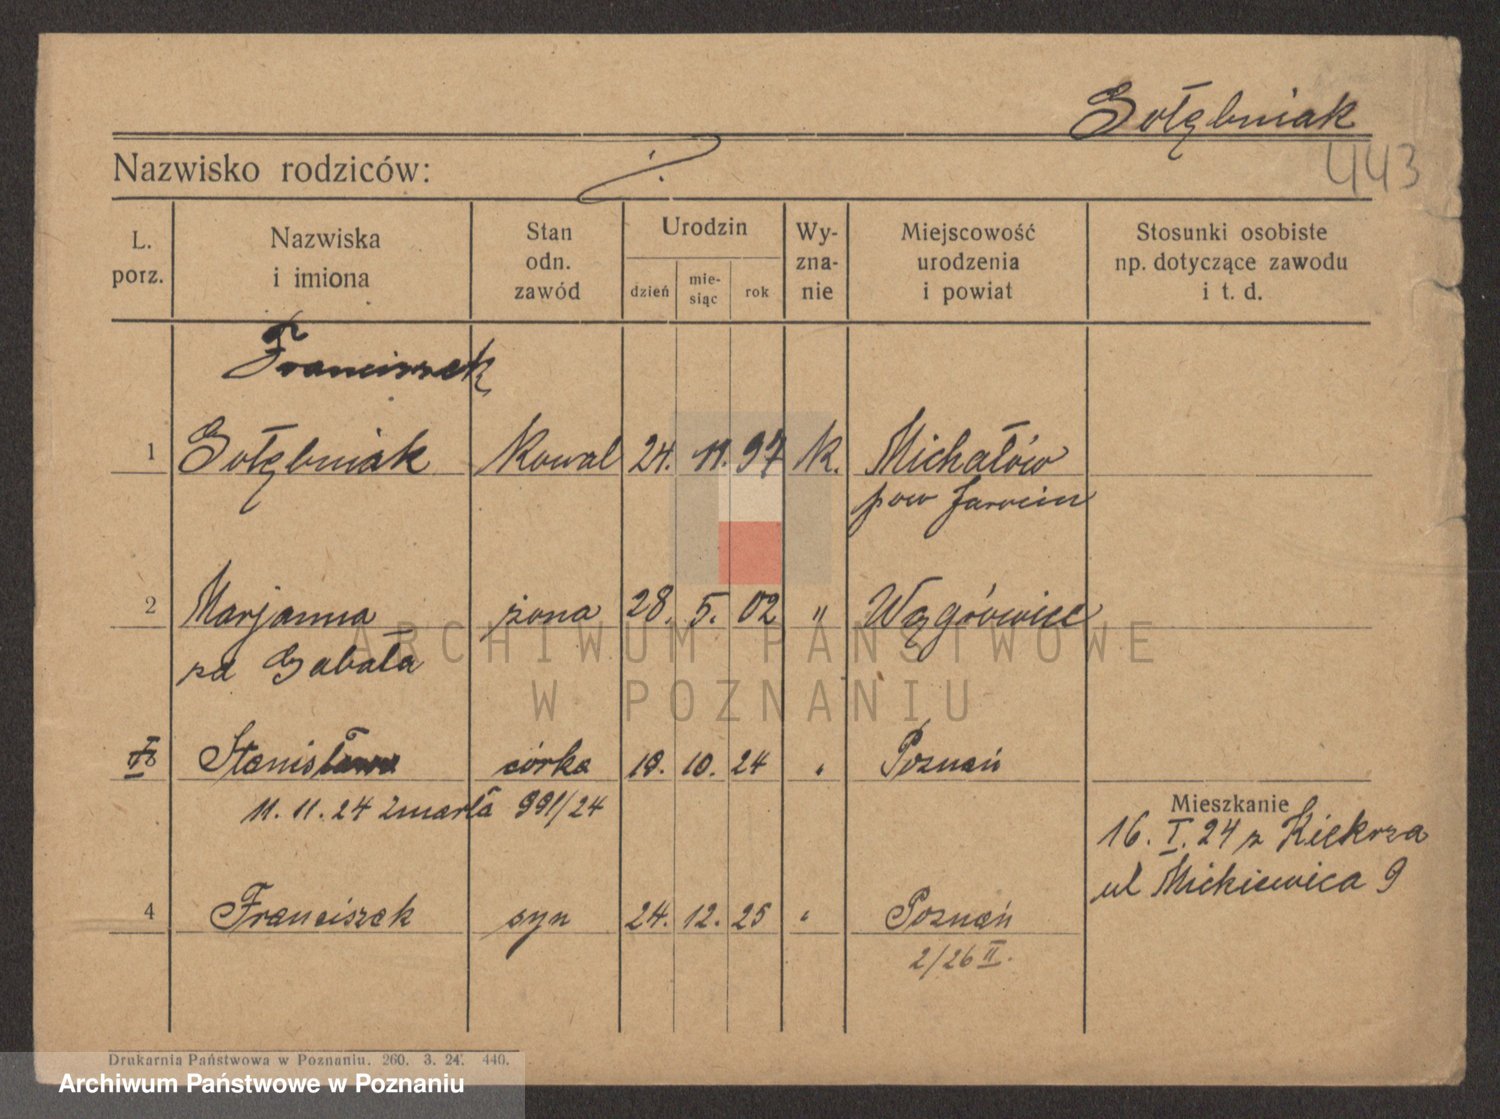 Gołębniak
443
Nazwisko rodziców:
L. porz.
Nazwiska i imiona
Stan odn. zawód
Urodzin
dzień
mie-siąc
rok
Wy-zna-nie
Miejscowość urodzenia i powiat
Stosunki osobiste np. dotyczące zawodu i t. d.
Franciszek
1 Gołębniak kowal 24. 11. 97 k. Michałów
pow Jarocin
2 Marjanna żona 28. 5. 02 " Wągrówiec
zd Gabała
Stanisława córka 19. 10. 24 " Poznań
11. 11. 24 zmarła 991/24
Mieszkanie
16. I. 24 z Kiekrza
ul Mickiewicza 9
4 Franciszek syn 24. 12. 25 " Poznań
2/26 II.
ARCHIWUM PAŃSTWOWE
W POZNANIU
Drukarnia Państwowa w Poznaniu. 260. 3. 24. 440.
Archiwum Państwowe w Poznaniu